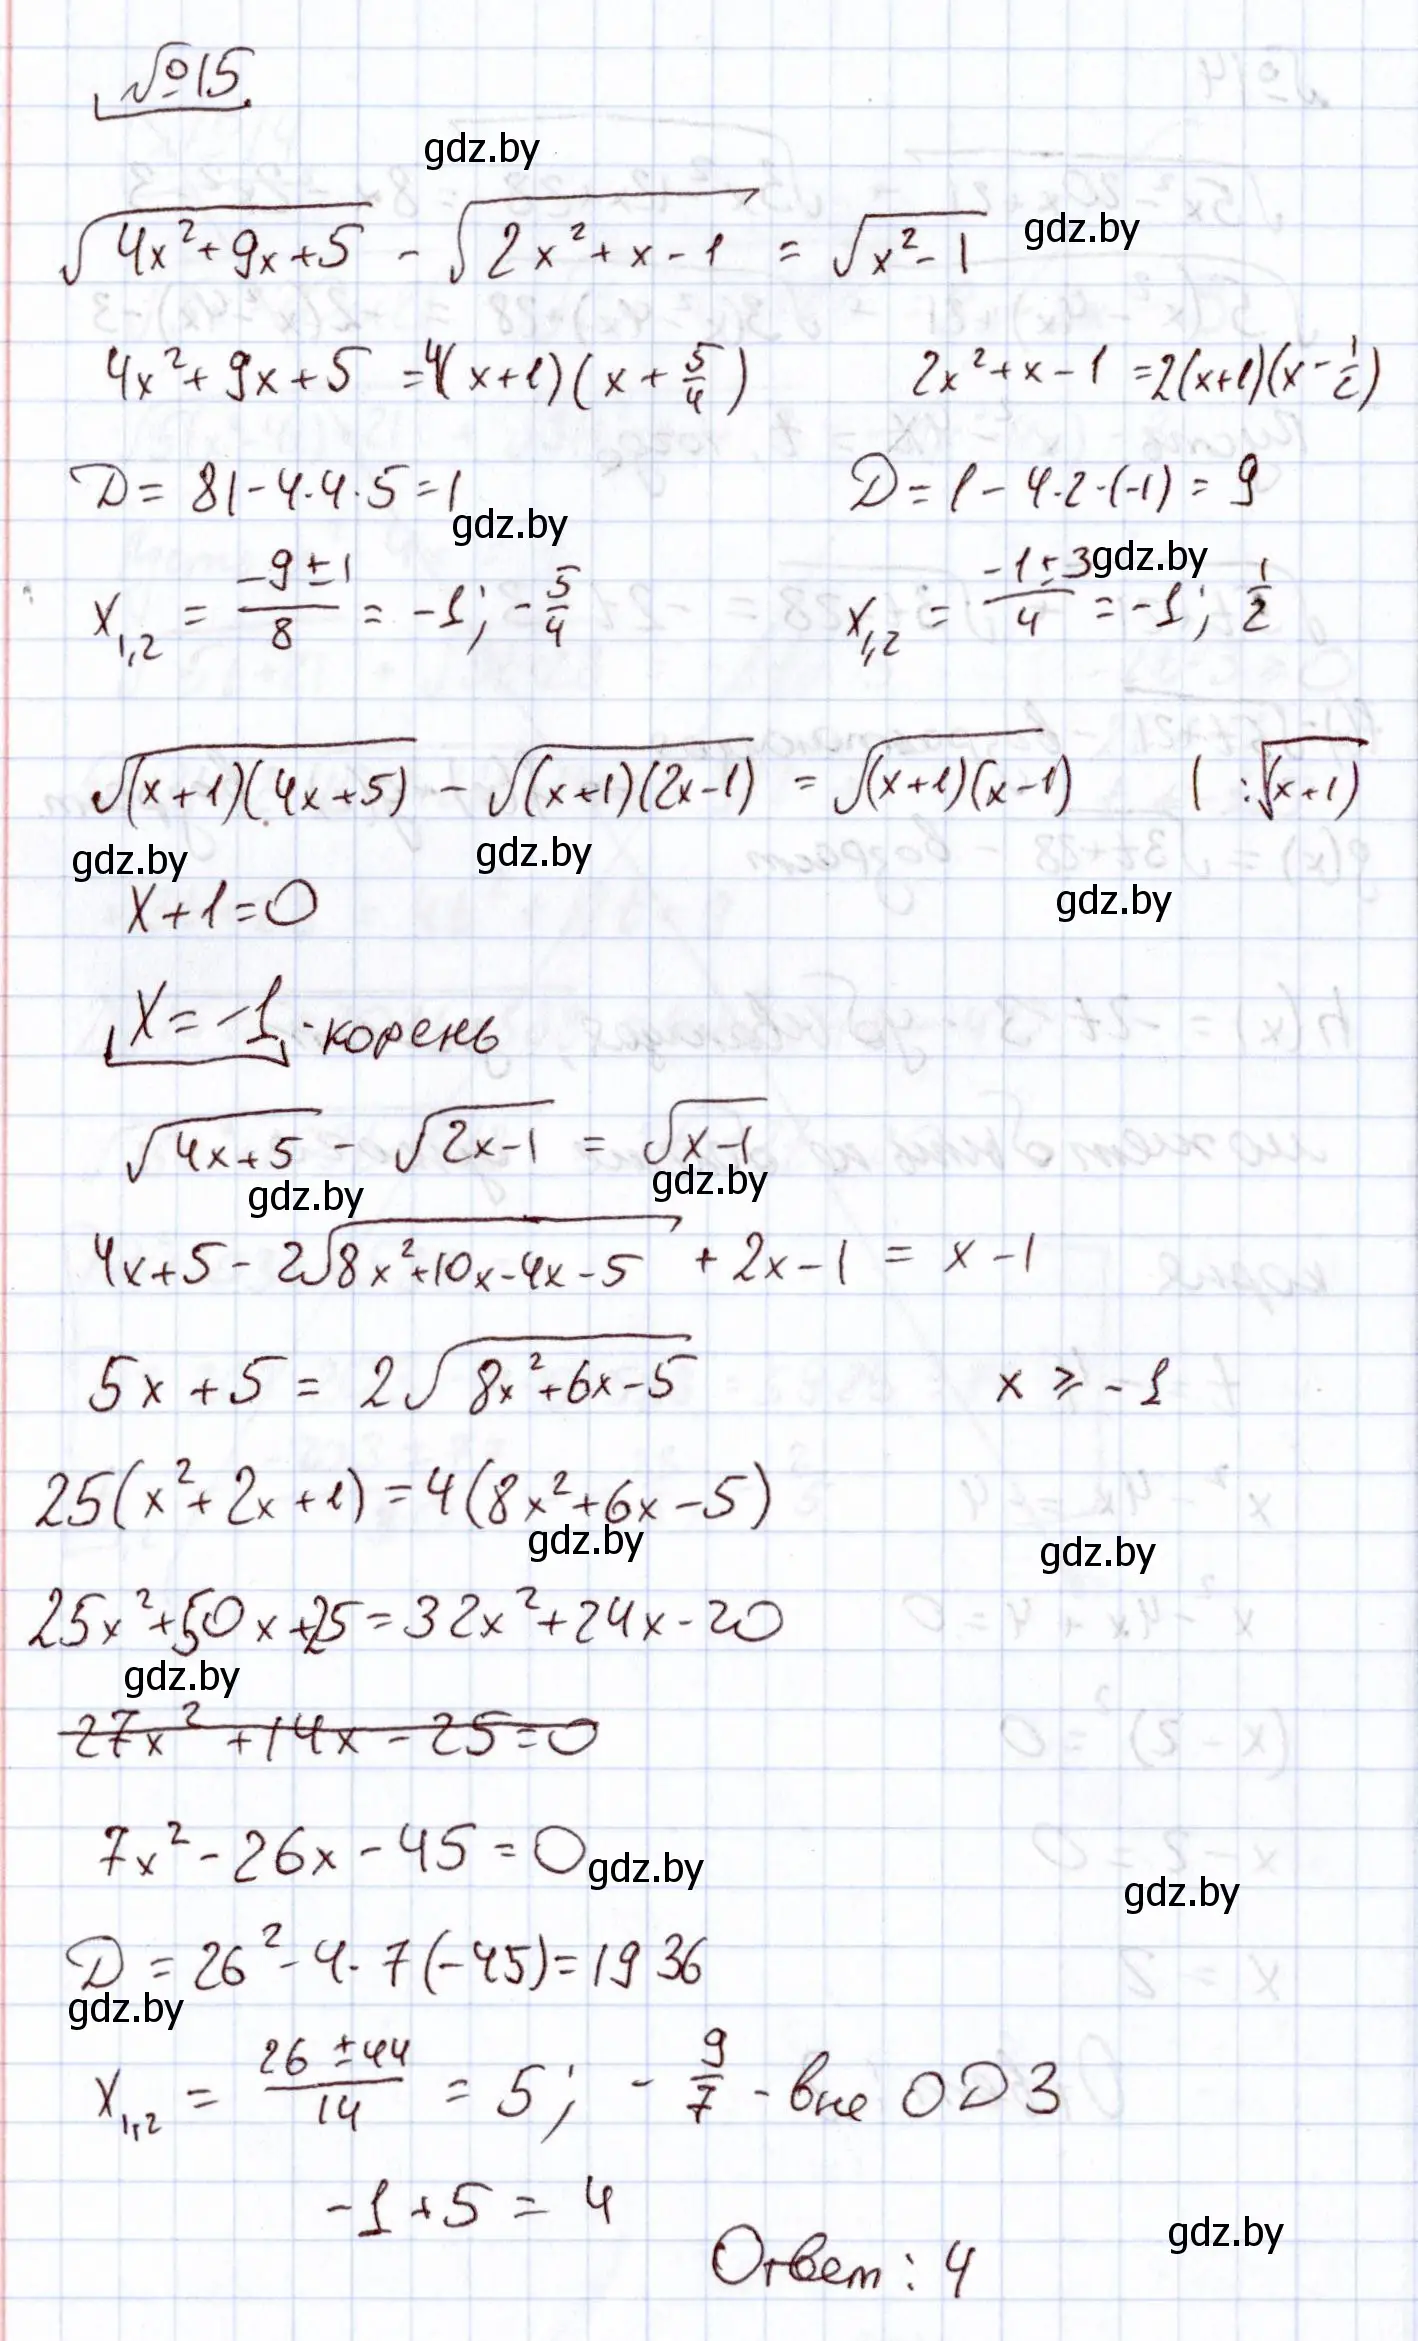 №15.
gdz.by
√(4x²+9x+5) - √(2x²+x-1) = √(x²-1) gdz.by
4x²+9x+5 =4(x+1)(x+5/4) 2x²+x-1 =2(x+1)(x-1/2)
D= 81-4·4·5=1 D=1-4·2·(-1)=9
gdz.by gdz.by
x₁,₂ = (-9±1)/8 = -1; -5/4 x₁,₂ = (-1±3)/4 = -1; 1/2
√((x+1)(4x+5)) - √((x+1)(2x-1)) = √((x+1)(x-1)) | :√(x+1)
gdz.by gdz.by gdz.by
x+1=0
x=-1 - корень
√(4x+5) - √(2x-1) = √(x-1)
gdz.by gdz.by
4x+5-2√(8x²+10x-4x-5) + 2x-1 = x-1
5x+5= 2√(8x²+6x-5) x ≥ -1
25(x²+2x+1)=4(8x²+6x-5)
gdz.by gdz.by
25x²+50x+25=32x²+24x-20
gdz.by
27x²+14x-25=0
7x²-26x-45=0 gdz.by
gdz.by
D=26²-4·7(-45)=1936
gdz.by
x₁,₂ = (26±44)/14 = 5; -9/7 - вне ОДЗ
-1+5=4
gdz.by
Ответ: 4